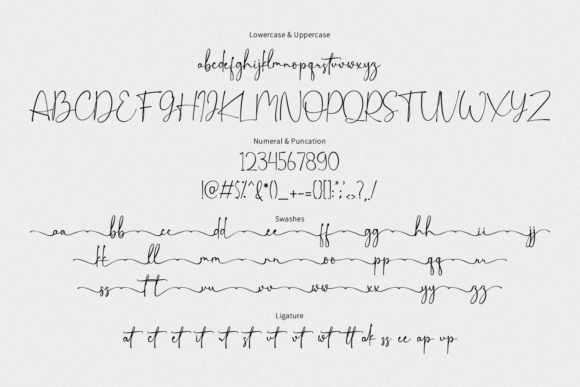 Lowercase & Uppercase
abcdefghijklmnopqrstuvwxyz
ABCDEFGHIJKLMNOPQRSTUVWXYZ
Numeral & Puncation
1234567890
!@#$%^&*()_+-={}[]:;'<>?,./
Swashes
aa bb cc dd ee ff gg hh ii jj
kk ll mm nn oo pp qq rr
ss tt uu vv ww xx yy zz
Ligature
at ct et it rt st ut vt wt tt ak ss ee ap up